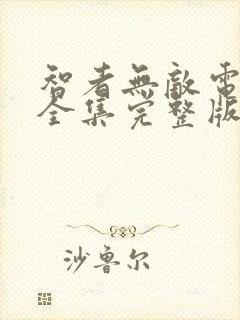 智者無敵電
全集完整版
沙鲁尔